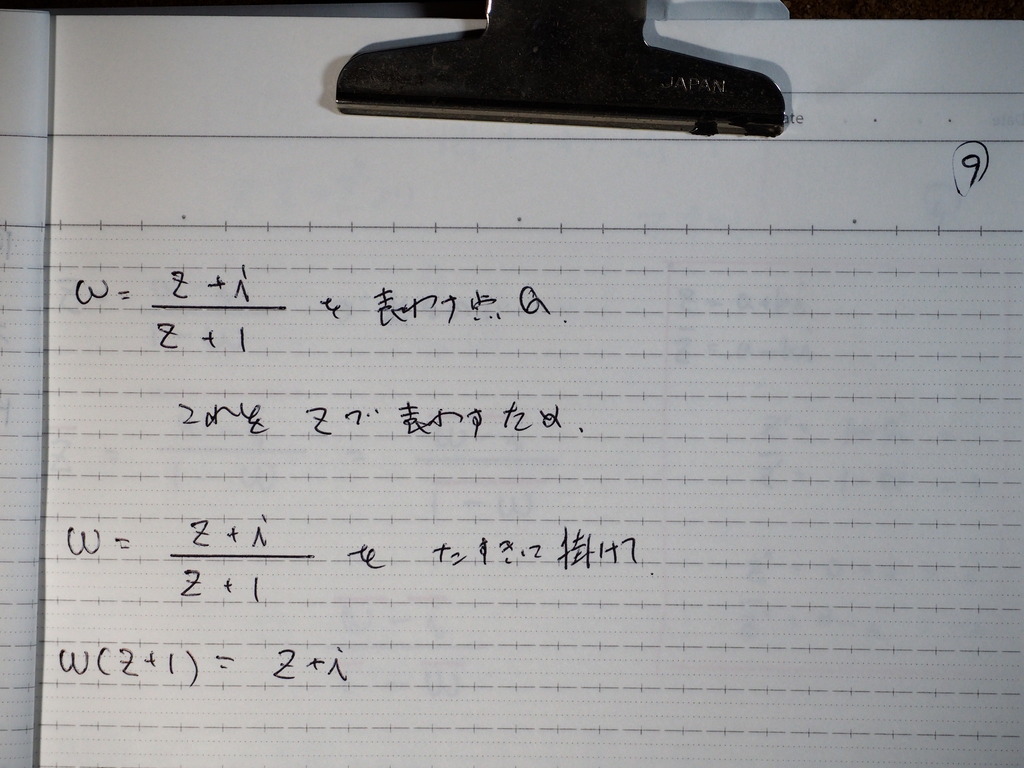 JAPAN
ate
⑨
ω = \frac{z+i}{z+1} を 表わす点Q.
これを zで 表わすため.
ω = \frac{z+i}{z+1} を たすきに掛けて.
ω(z+1) = z+i